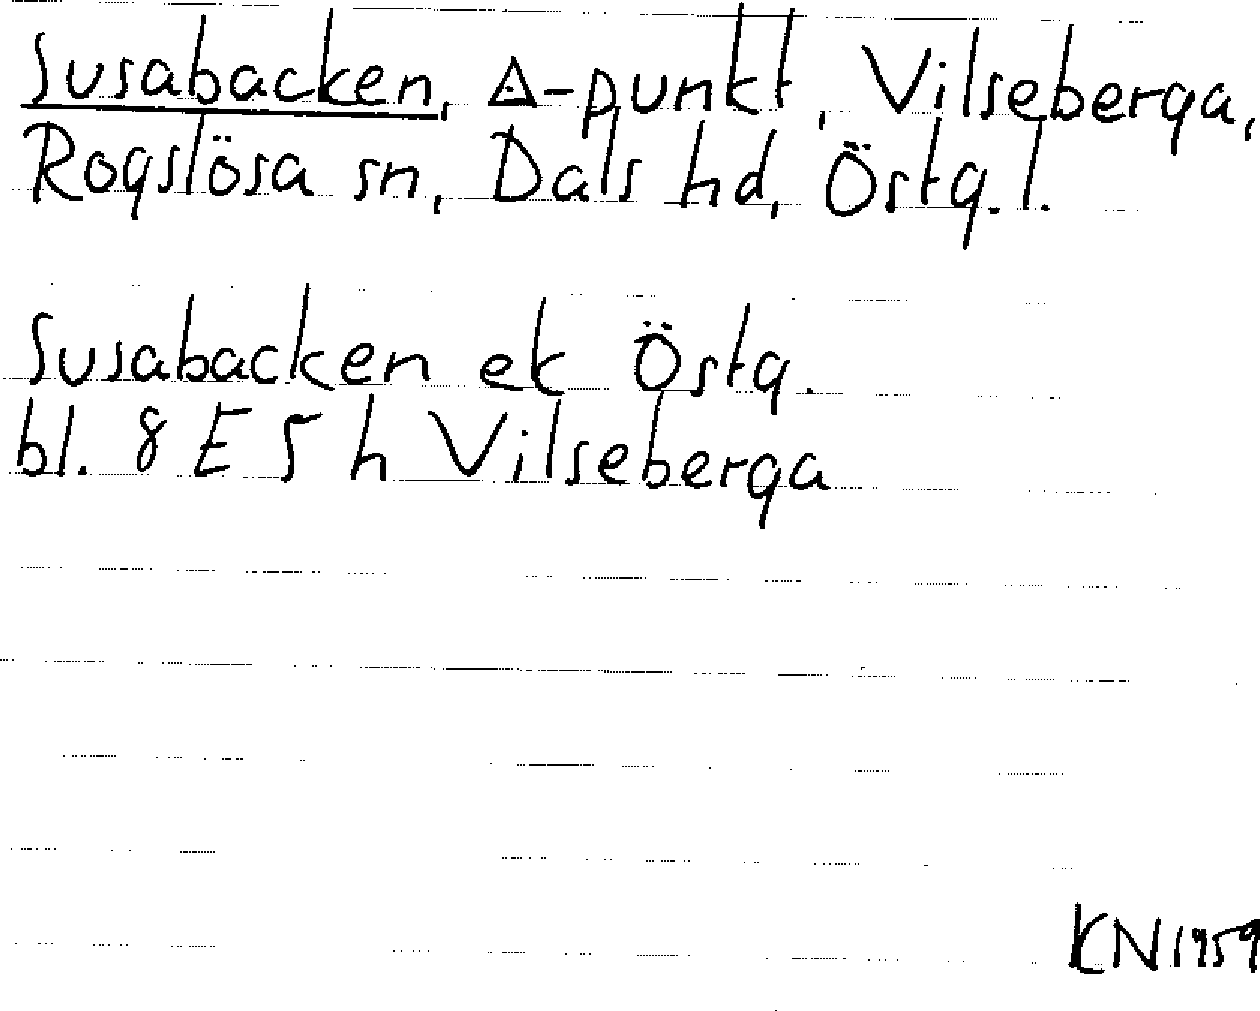 Susabacken, △-punkt, Vilseberga,
Rogslösa sn, Dals hd, Östg. l.
Susabacken ek Östg.
bl. 8 E 5 h Vilseberga
KN 1959